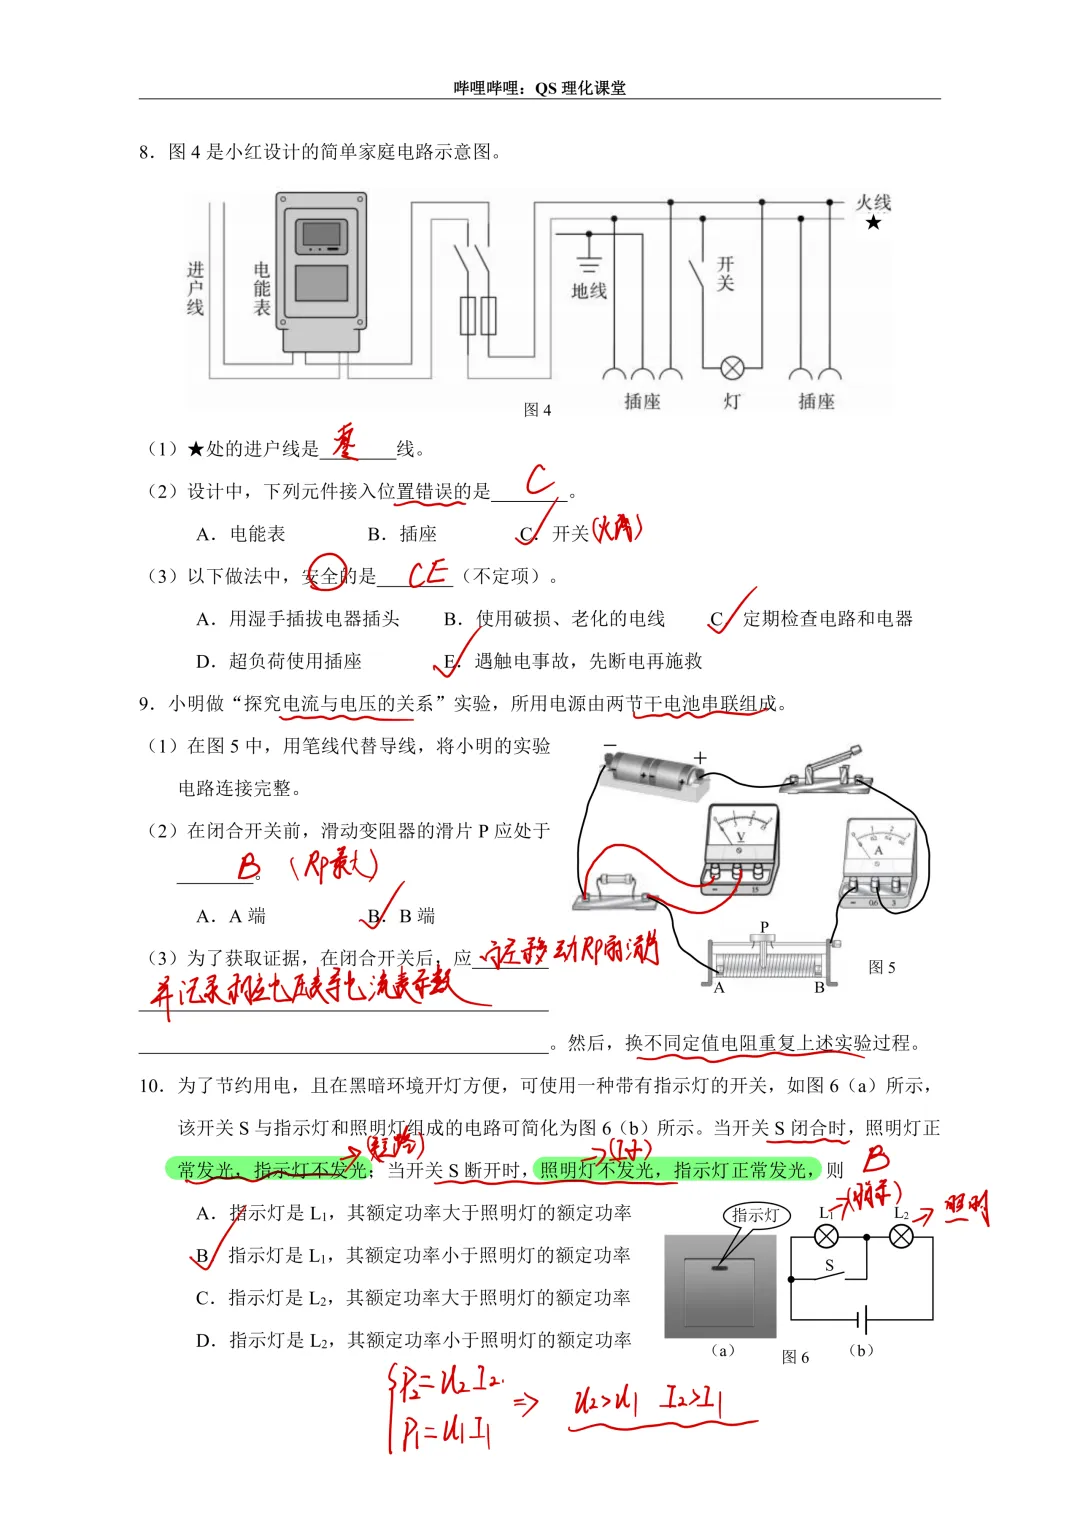 哔哩哔哩：QS 理化课堂
8．图 4 是小红设计的简单家庭电路示意图。
火线
★
进户线
电能表
地线
开关
插座
灯
插座
图 4
（1）★处的进户线是 零 线。
（2）设计中，下列元件接入位置错误的是 C 。
A．电能表 B．插座 C．开关 (火席)
（3）以下做法中，安全的是 CE （不定项）。
A．用湿手插拔电器插头 B．使用破损、老化的电线 C．定期检查电路和电器
D．超负荷使用插座 E．遇触电事故，先断电再施救
9．小明做“探究电流与电压的关系”实验，所用电源由两节干电池串联组成。
（1）在图 5 中，用笔线代替导线，将小明的实验
电路连接完整。
（2）在闭合开关前，滑动变阻器的滑片 P 应处于
B 。 (Rp最大)
A．A 端 B．B 端
（3）为了获取证据，在闭合开关后，应 移动Rp的滑片
并记录相应电压表与电流表示数
。然后，换不同定值电阻重复上述实验过程。
− +
V
A
− 15
− 0.6 3
P
A B
图 5
10．为了节约用电，且在黑暗环境开灯方便，可使用一种带有指示灯的开关，如图 6（a）所示，
该开关 S 与指示灯和照明灯组成的电路可简化为图 6（b）所示。当开关 S 闭合时，照明灯正
(短路) (I小)
常发光，指示灯不发光；当开关 S 断开时，照明灯不发光，指示灯正常发光，则 B
A．指示灯是 L1，其额定功率大于照明灯的额定功率
B．指示灯是 L1，其额定功率小于照明灯的额定功率
C．指示灯是 L2，其额定功率大于照明灯的额定功率
D．指示灯是 L2，其额定功率小于照明灯的额定功率
指示灯
L1 (指示) L2 照明
S
（a） 图 6 （b）
P2=U2I2 ⇒ U2>U1 I2>I1
P1=U1I1